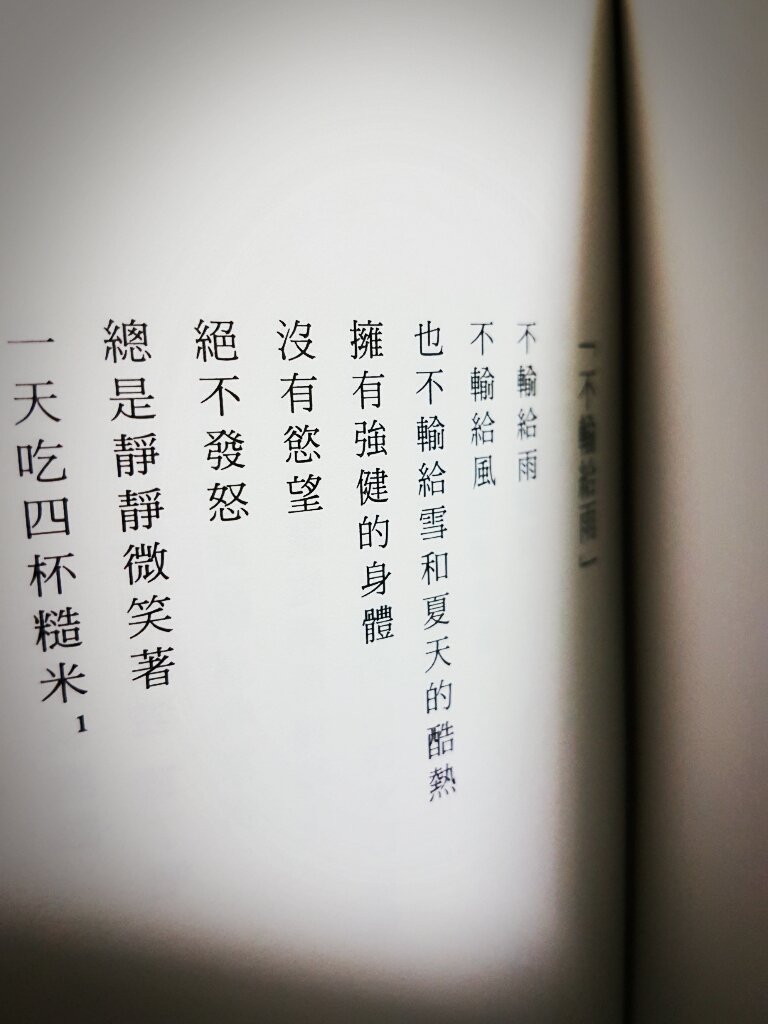 「不輸給雨」
不輸給雨
不輸給風
也不輸給雪和夏天的酷熱
擁有強健的身體
沒有慾望
絕不發怒
總是靜靜微笑著
一天吃四杯糙米1